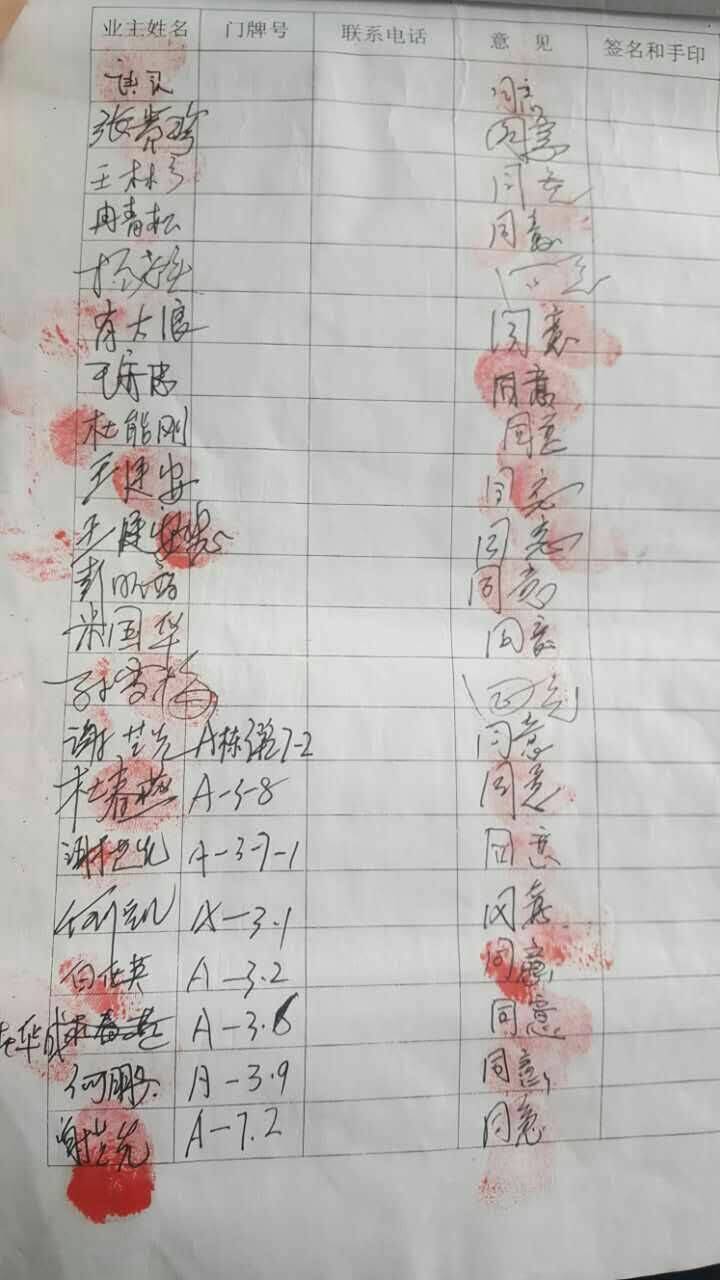 业主姓名 门牌号 联系电话 意见 签名和手印
同意
张贵珍 同意
王林 同意
冉青松 同意
同意
有大浪 同意
同意
杜能刚 同意
王建安 同意
王建安 同意
彭 同意
米国华 同意
孙雪梅 同意
谢芝先 A栋 7-2 同意
杜春燕 A-3-8 同意
谢芝先 A-3-7-1 同意
何凯 A-3.1 同意
白在英 A-3.2 同意
华成 A-3.6 同意
何鹏 A-3.9 同意
谢芝先 A-7.2 同意